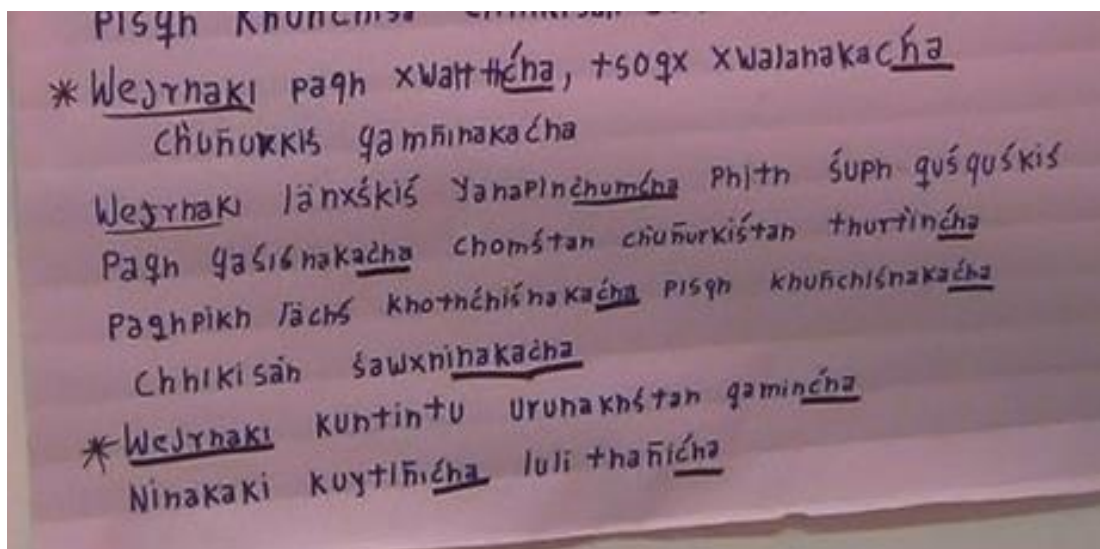 pisqh khuñchisa
* Wejrnaki paqh xwaltićha, tsoqx xwalanakaćha
ćhuñurkiś qamñinakaćha
Wejrnaki länxśkiś yanapinćhumćha Phith śuph quśquśkiś
Paqh qaśiśnakaćha chomśtan ćhuñurkiśtan thurtinćha
Paqhpikh łächś khothćhiśnakaćha pisqh khuñchiśnakaćha
Chhikisan śawxninakaćha
* Wejrnaki kuntintu urunakhśtan qaminćha
Ninakaki kuytiñićha luli thañićha